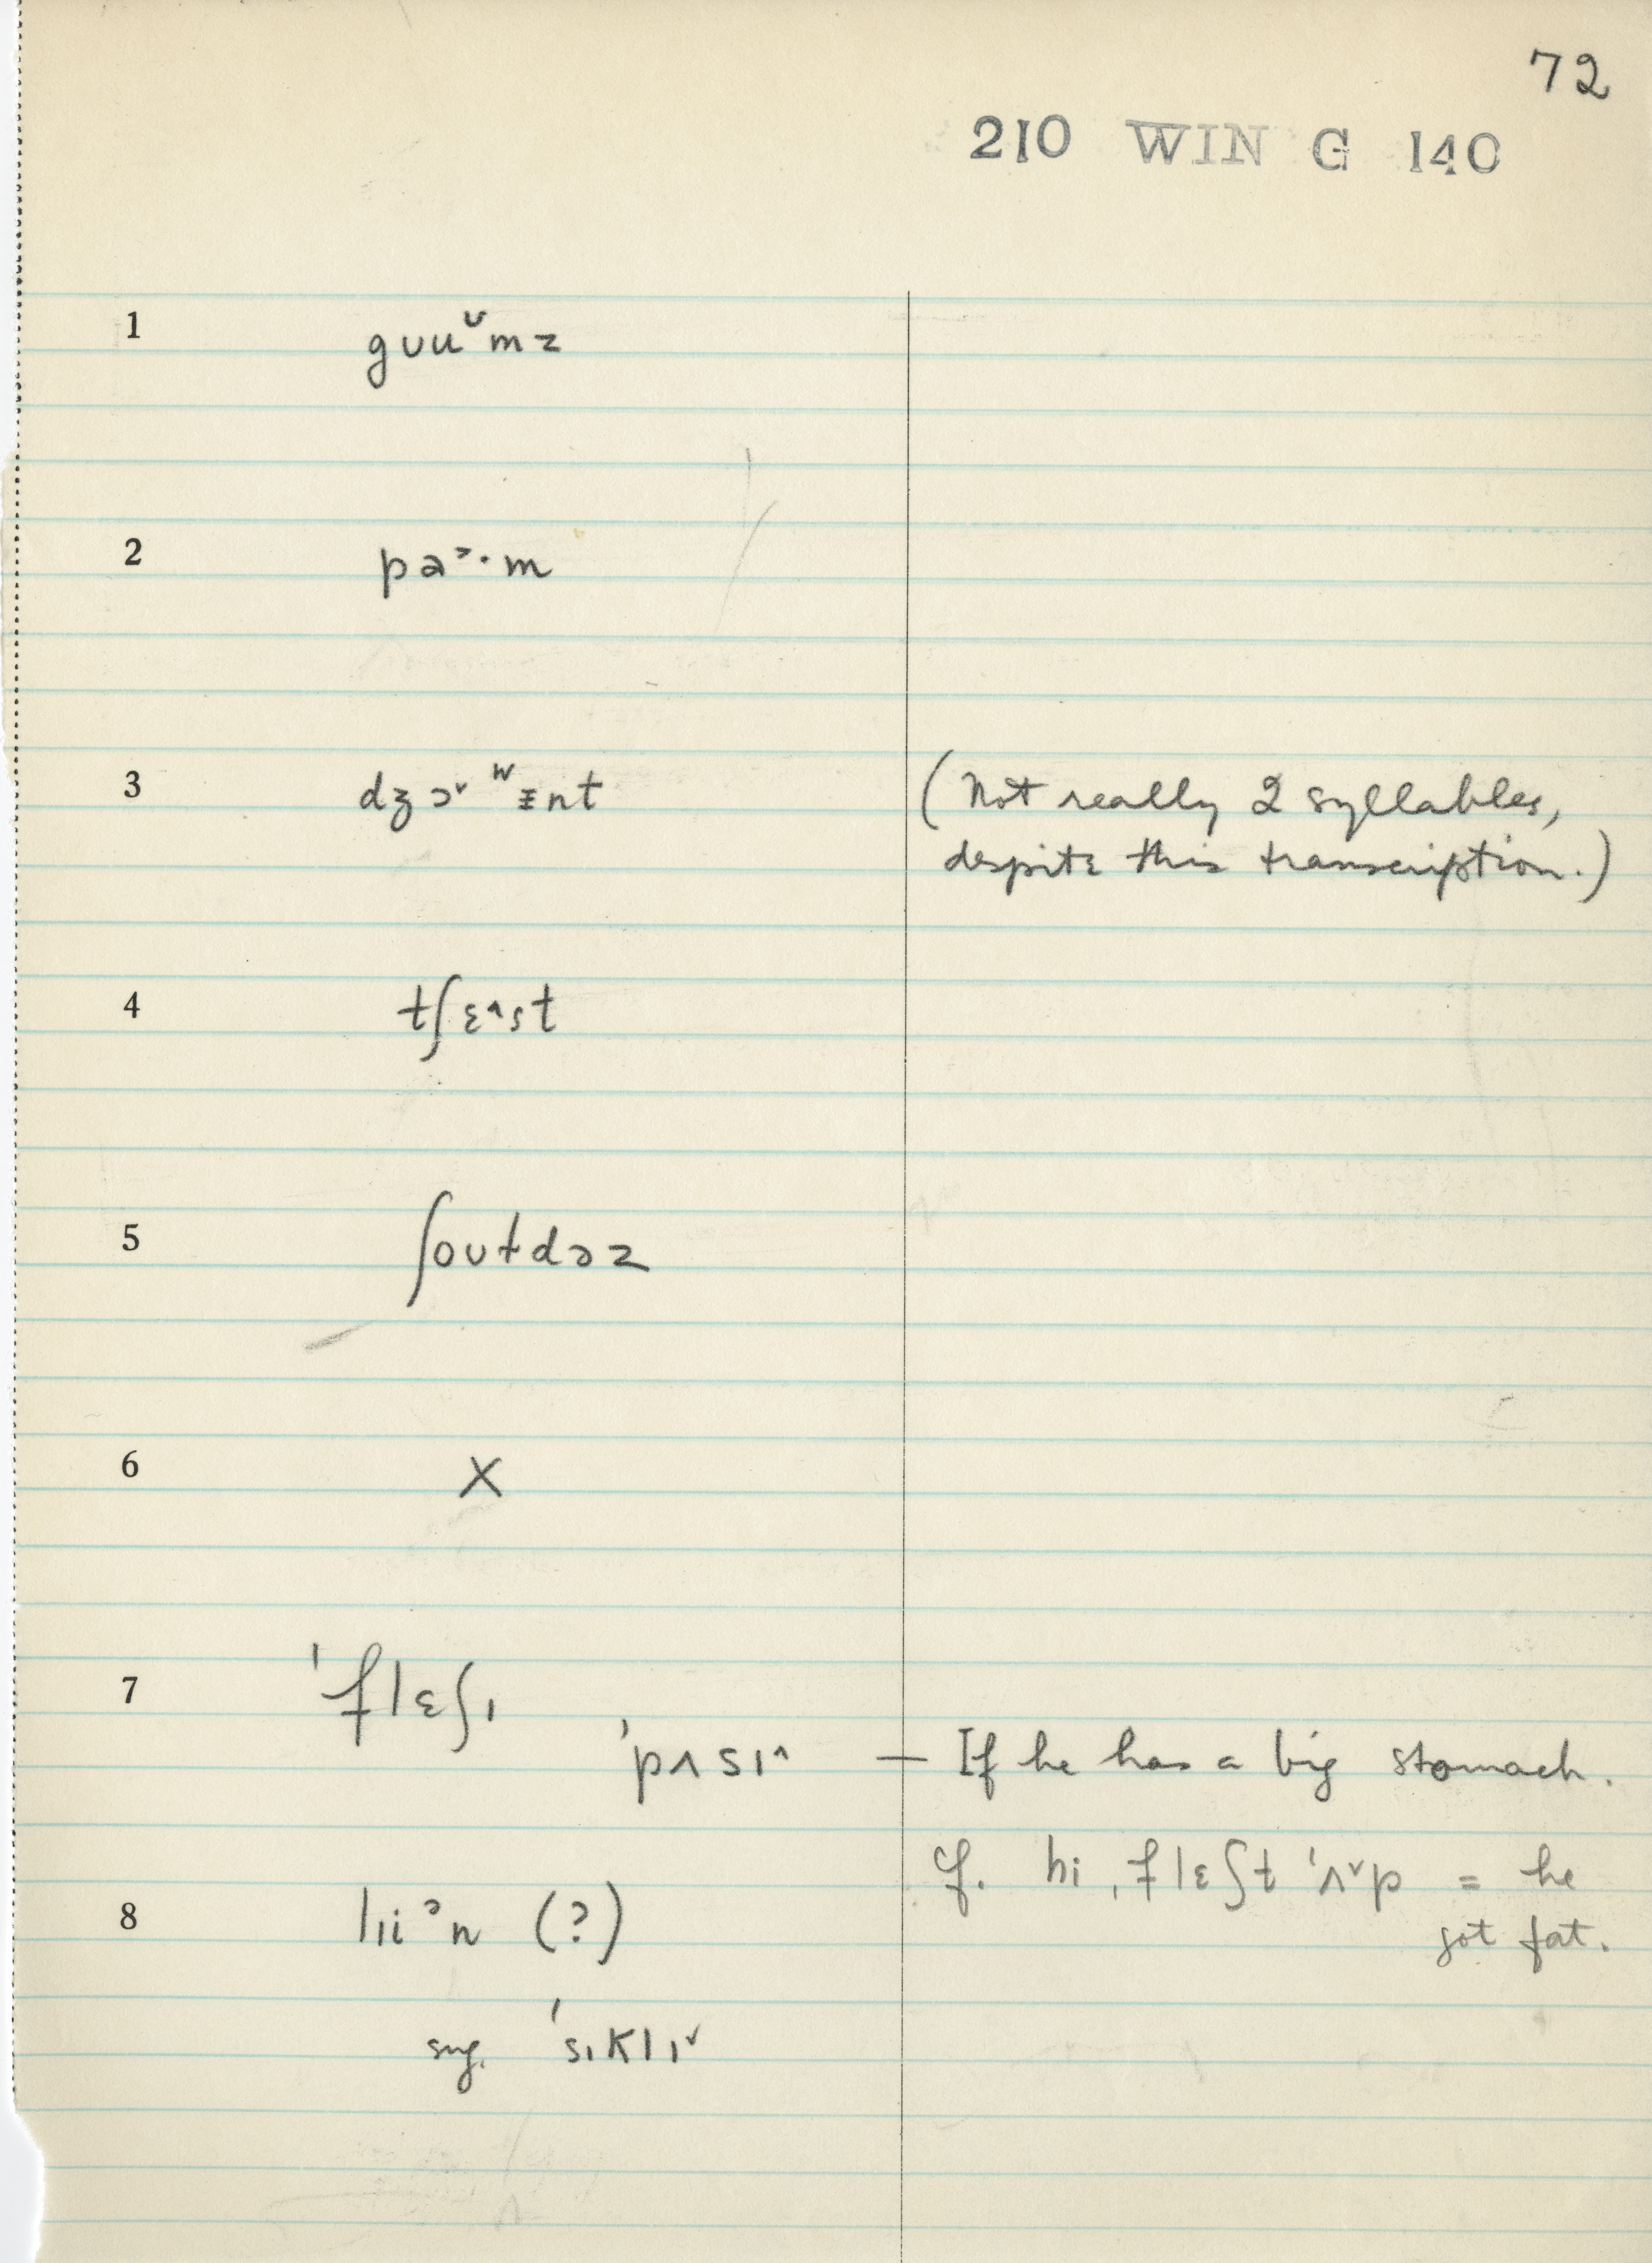 72
210 WIN G 140
1 gʊuᵛmz
2 pa˃·m
3 dʒɔ˅ ʷᵻnt (Not really 2 syllables,
despite this transcription.)
4 tʃɛ^st
5 ʃoʊɫdəz
6 X
7 'flɛʃɪ
'pʌsɪ^ — If he has a big stomach.
cf. hi ˌflɛʃt 'ʌ˅p = he
got fat.
8 lɪiᵊn (?)
sug. 'sɪklɪ˅